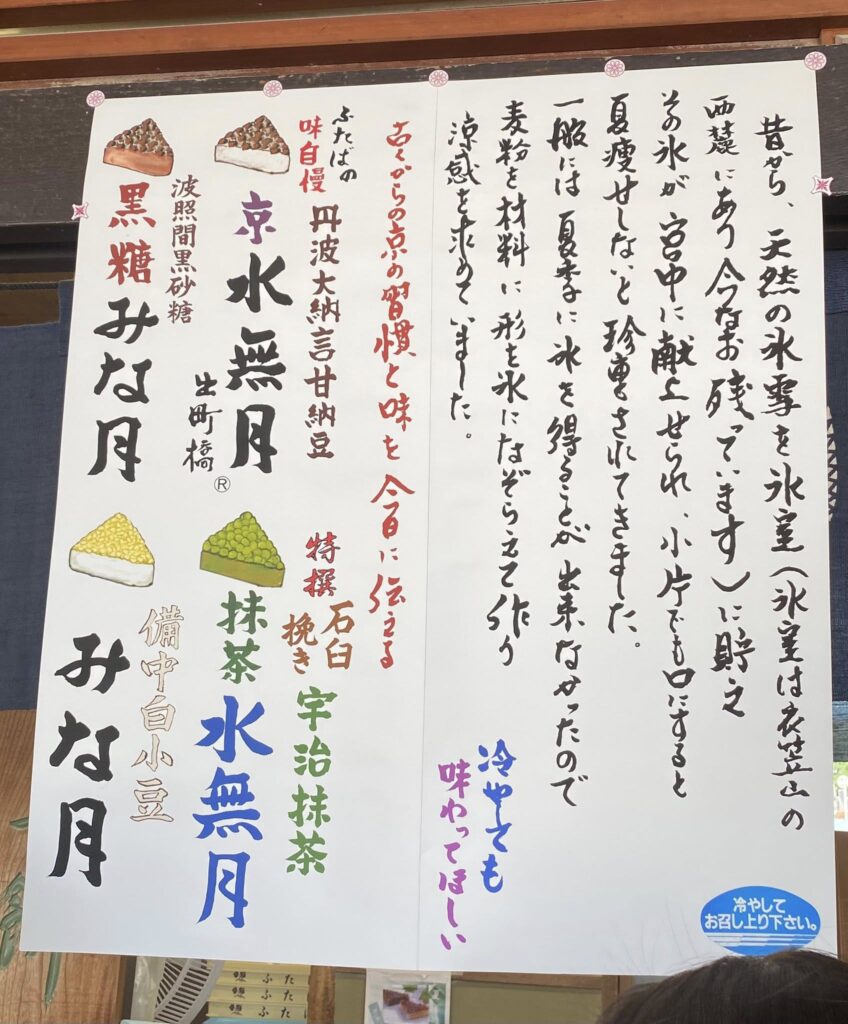 昔から、天然の氷雪を氷室(氷室は衣笠山の
西麓にあり今なお残っています)に貯え
その氷が宮中に献上せられ、小片でも口にすると
夏痩せしないと珍重されてきました。
一般には夏季に氷を得ることが出来なかったので
麦粉を材料に形を氷になぞらえて作り
涼感を求めていました。
冷やしても
味わってほしい
冷やして
お召し上り下さい。
古くからの京の習慣と味を今日に伝える
ふたばの
味自慢
丹波大納言甘納豆
京水無月
出町橋
®
波照間黒砂糖
黒糖みな月
特撰
石臼
挽き
宇治抹茶
抹茶
水無月
備中白小豆
みな月
ふた
ふた
ふた